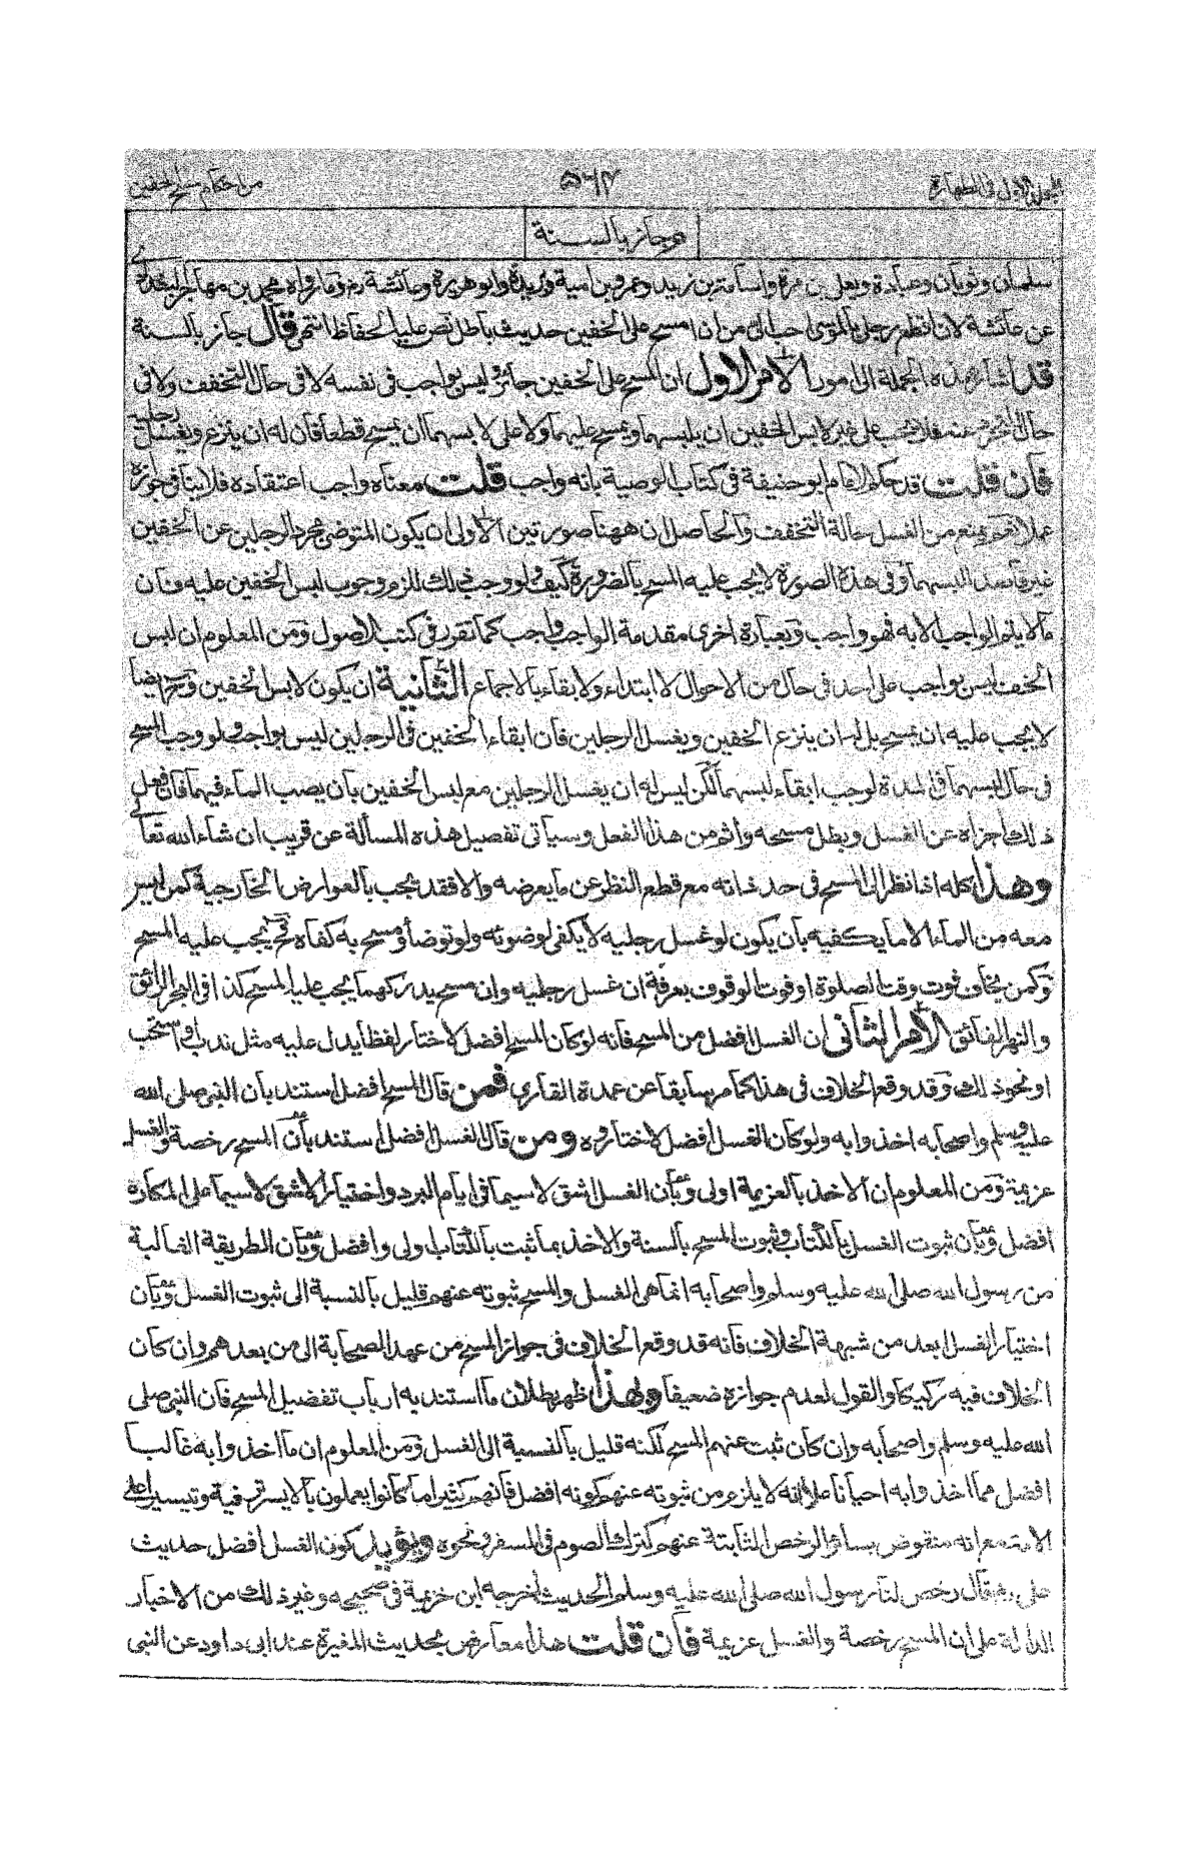 من احكام مسح الخفين
٥٦٤
هو جائز بالسنة
سلمان وثوبان وعبادة ويعلى بن مرة واسامة بن زيد وعمرو بن امية وبريدة وابو هريرة وعائشة رض وما رواه محمد بن مهاجر البغدادي
عن عائشة لان اقطع رجلي بالموسى احب الى من ان امسح على الخفين حديث باطل نص عليه الحفاظ انتهى قال جائز بالسنة
قد اشار بهذه الجملة الى امور الامر الاول ان المسح على الخفين جائز وليس بواجب فى نفسه لا فى حال التخفف ولا فى
حال التجرد عنه فلا يجب على غير لابس الخفين ان يلبسهما ويمسح عليهما ولا على لابسهما ان يمسح قطعا فان له ان ينزع ويغسل رجليه
فان قلت قد حكم الامام ابو حنيفة فى كتاب الوصية بانه واجب قلت معناه واجب اعتقاده فلا ينافى جوازه
عملا نعم يمنع من الغسل حالة التخفف والحاصل ان ههنا صورتين الاولى ان يكون المتوضى مجرد الرجلين عن الخفين
غير قاصد للبسهما وفى هذه الصورة لا يجب عليه المسح بالضرورة كيف ولو وجب ذلك للزم وجوب لبس الخفين عليه فان
ما لا يتم الواجب الا به فهو واجب وبعبارة اخرى مقدمة الواجب واجب كما تقرر فى كتب الاصول ومن المعلوم ان لبس
الخف ليس بواجب على احد فى حال من الاحوال لا ابتداء ولا بقاء بالاجماع الثانية ان يكون لابس الخفين وح ايضا
لا يجب عليه ان يمسح بل له ان ينزع الخفين ويغسل الرجلين فان ابقاء الخفين فى الرجلين ليس بواجب ولو وجب المسح
فى حال لبسهما فى المدة لوجب ابقاء لبسهما لكن ليس له ان يغسل الرجلين مع لبس الخفين بان يصب الماء فيهما فان فعل
ذلك اجزاه عن الغسل وبطل مسحه واثم من هذا الفعل وسياتى تفصيل هذه المسألة عن قريب ان شاء الله تعالى
وهذا كله اذا نظر الى المسح فى حد ذاته مع قطع النظر عن ما يعرضه والا فقد يجب بالعوارض الخارجية كمن ليس
معه من الماء الا ما يكفيه بان يكون لو غسل رجليه لا يكفى لوضوئه ولو توضأ ومسح به كفاه فح يجب عليه المسح
وكمن يخاف فوت وقت الصلوة او فوت الوقوف بعرفة ان غسل رجليه وان مسح يدركهما يجب عليه المسح كذا فى البحر الرائق
والنهر الفائق الامر الثانى ان الغسل افضل من المسح فانه لو كان المسح افضل لاختار لفظا يدل عليه مثل ندب او استحب
او نحو ذلك وقد وقع الخلاف فى هذا كما مر سابقا عن عمدة القارى فمن قال المسح افضل استند بان النبى صلى الله
عليه وسلم واصحابه اخذوا به ولو كان الغسل افضل لاختاروه ومن قال الغسل افضل استند بان المسح رخصة والغسل
عزيمة ومن المعلوم ان الاخذ بالعزيمة اولى وبان الغسل اشق لا سيما فى ايام البرد واختيار الاشق لا سيما على المكاره
افضل وبان ثبوت الغسل بالكتاب وثبوت المسح بالسنة والاخذ بما ثبت بالكتاب اولى وافضل وبان الطريقة الغالبة
من رسول الله صلى الله عليه وسلم واصحابه انما هى الغسل والمسح ثبوته عنهم قليل بالنسبة الى ثبوت الغسل وبان
اختيار الغسل ابعد من شبهة الخلاف فانه قد وقع الخلاف فى جواز المسح من عهد الصحابة الى من بعدهم وان كان
الخلاف فيه ركيكا والقول لعدم جوازه ضعيفا وبهذا ظهر بطلان ما استند به ارباب تفضيل المسح فان النبى صلى
الله عليه وسلم واصحابه وان كان ثبت عنهم المسح لكنه قليل بالنسبة الى الغسل ومن المعلوم ان ما اخذوا به غالبا
افضل مما اخذوا به احيانا على انه لا يلزم من ثبوته عنهم كونه افضل فانهم كثيرا ما كانوا يعملون بالايسر ترفية وتيسيرا على
الامة مع انه منقوض بسائر الرخص الثابتة عنهم كترك الصوم فى السفر ونحوه ويؤيد كون الغسل افضل حديث
على رض قال رخص لنا رسول الله صلى الله عليه وسلم الحديث اخرجه ابن خزيمة فى صحيحه وغير ذلك من الاخبار
الدالة على ان المسح رخصة والغسل عزيمة فان قلت هذا معارض بحديث المغيرة عند ابى داود عن النبى